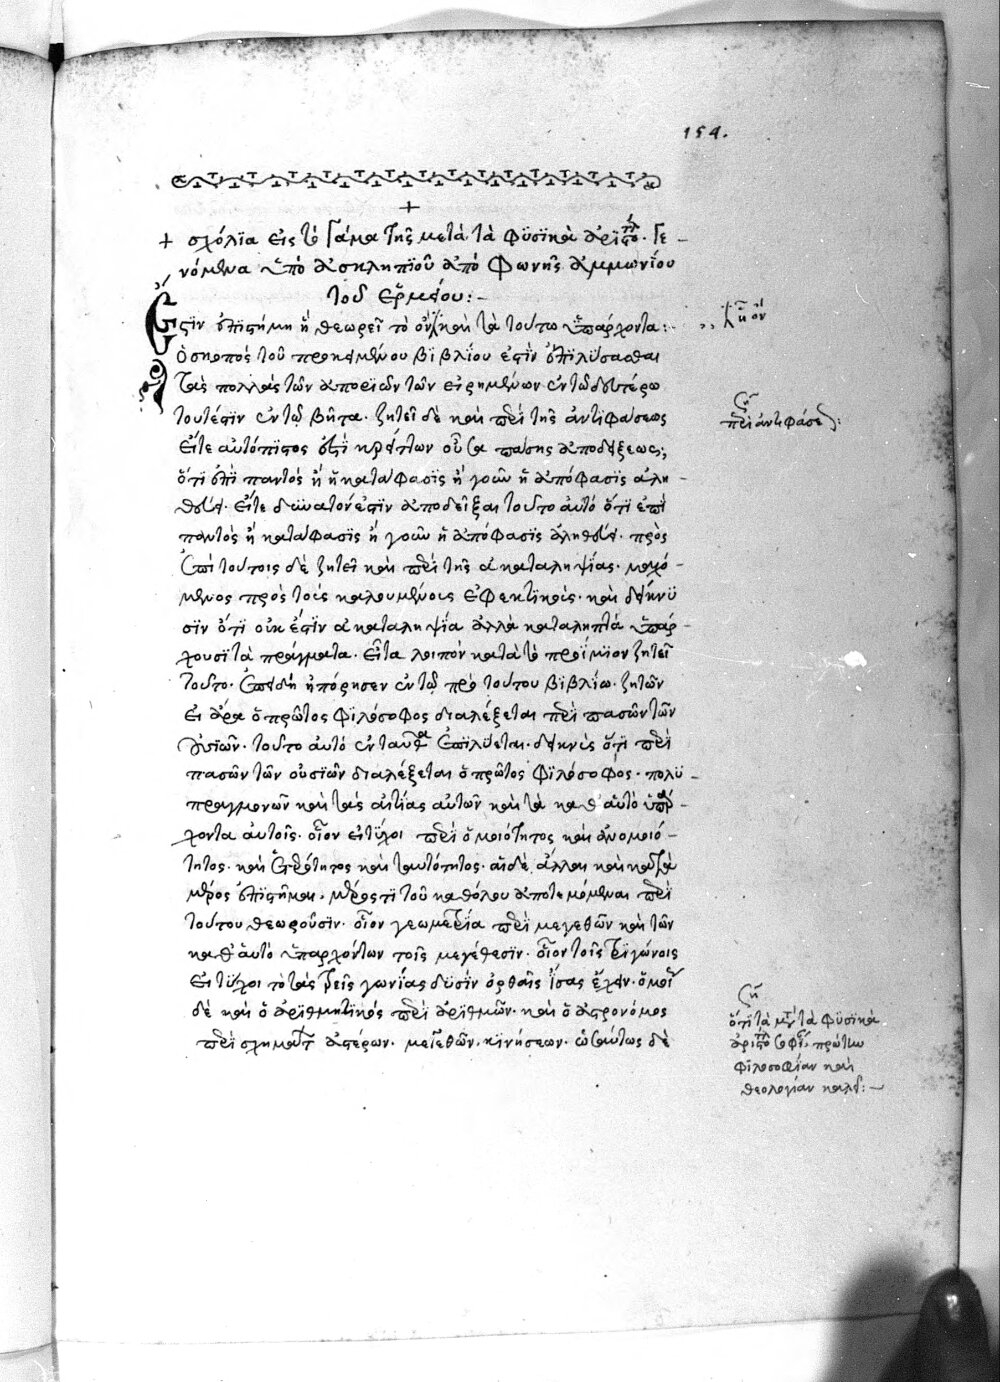 154.
+
+ σχόλϊα εἰς τὸ Γάμα τῆς μετὰ τὰ φϋσϊκὰ ἀριστο^τλ. Γε-
νόμενα ὑπὸ ἀσκληπϊοῦ ἀπὸ φωνῆς ἀμμωνίου
τοῦ ἑρμείου:-
Ἔςϊν ἐπιςήμη ἣ θεωρεῖ τὸ ὂν καὶ τὰ τούτω ὑπάρχοντα:
ὁ σκοπὸς τοῦ προκειμένου βϊβλίου ἐςὶν ἐπϊλύσασθαι
τὰς πολλὰς τῶν ἀποριῶν τῶν εἰρημένων ἐν τῶ δευτέρω
τουτέςϊν ἐν τῶ βῆτα. ζητεῖ δὲ καὶ περὶ τῆς ἀντιφάσεως
εἴτε αὐτόπϊςος ἐςϊ κρείττων οὖσα πάσης ἀποδείξεως,
ὅτι ἐπὶ παντὸς ἢ ἡ κατάφασϊς ἢ γοῦν ἡ ἀπόφασϊς ἀλη-
θεύει. εἴτε δυνατόν ἐςϊν ἀποδεῖξαι τοῦτο αὐτὸ ὅτι ἐπὶ
παντὸς ἢ κατάφασϊς ἢ γοῦν ἡ ἀπόφασϊς ἀληθεύει. πρὸς
ἐπὶ τούτοις δὲ ζητεῖ καὶ περὶ τῆς ἀκαταληψίας. μαχό-
μενος πρὸς τοὺς καλουμένοις ἐφεκτϊκοὺς. καὶ δείκνυ
σϊν ὅτι οὐκ ἔςϊν ἀκαταληψϊα ἀλλὰ καταληπτὰ ὑπάρ-
χουσϊ τὰ πράγματα. εἶτα λοιπὸν κατὰ τὸ προίμϊον ζητεῖ
τοῦτο. ἐπειδὴ ἠπόρησεν ἐν τῶ πρὸ τούτου βϊβλίω. ζητῶν
εἰ ἄρα ὁ πρῶτος φϊλόσοφος διαλέξεται περὶ πασῶν τῶν
οὐσϊῶν. τοῦτο αὐτὸ ἐνταῦθα ἐπϊλύεται. δεικνὺς ὅτι περὶ
πασῶν τῶν οὐσϊῶν διαλέξεται ὁ πρῶτος φϊλόσοφος. πολϋ-
πραγμονῶν καὶ τὰς αἰτίας αὐτῶν καὶ τὰ καθ' αὑτὸ ὑπάρ-
χοντα αὐτοῖς. οἷον εἰ τύχοι περὶ ὁμοιότητος καὶ ἀνομοιό-
τητος. καὶ ἑτερότητος καὶ ταυτότητος. αἱ δὲ ἄλλαι καὶ κατὰ
μέρος ἐπιςῆμαι. μέρος τι τοῦ καθόλου ἀποτεμόμεναι περὶ
τούτου θεωροῦσϊν. οἷον γεωμετρία περὶ μεγεθῶν καὶ τῶν
καθ' αὑτὸ ὑπαρχόντων τοῖς μεγέθεσϊν. οἷον τοῖς τρϊγώνοις
εἰ τύχοι τὸ τὰς τρεῖς γωνίας δϋσὶν ὀρθαῖς ἴσας ἔχειν. ὁμοίως
δὲ καὶ ὁ ἀρϊθμητϊκὸς περὶ ἀρϊθμῶν. καὶ ὁ ἀςρονόμος
περὶ σχημάτων ἀςέρων. μεγεθῶν. κινήσεων. ὡσαύτως δὲ
ἧ ὂν
περὶ ἀντιφάσεως:
ὅτϊ τὰ μετὰ τὰ φϋσϊκὰ
πρώτην
φϊλοσοφϊαν καὶ
θεολογίαν καλεῖ:-